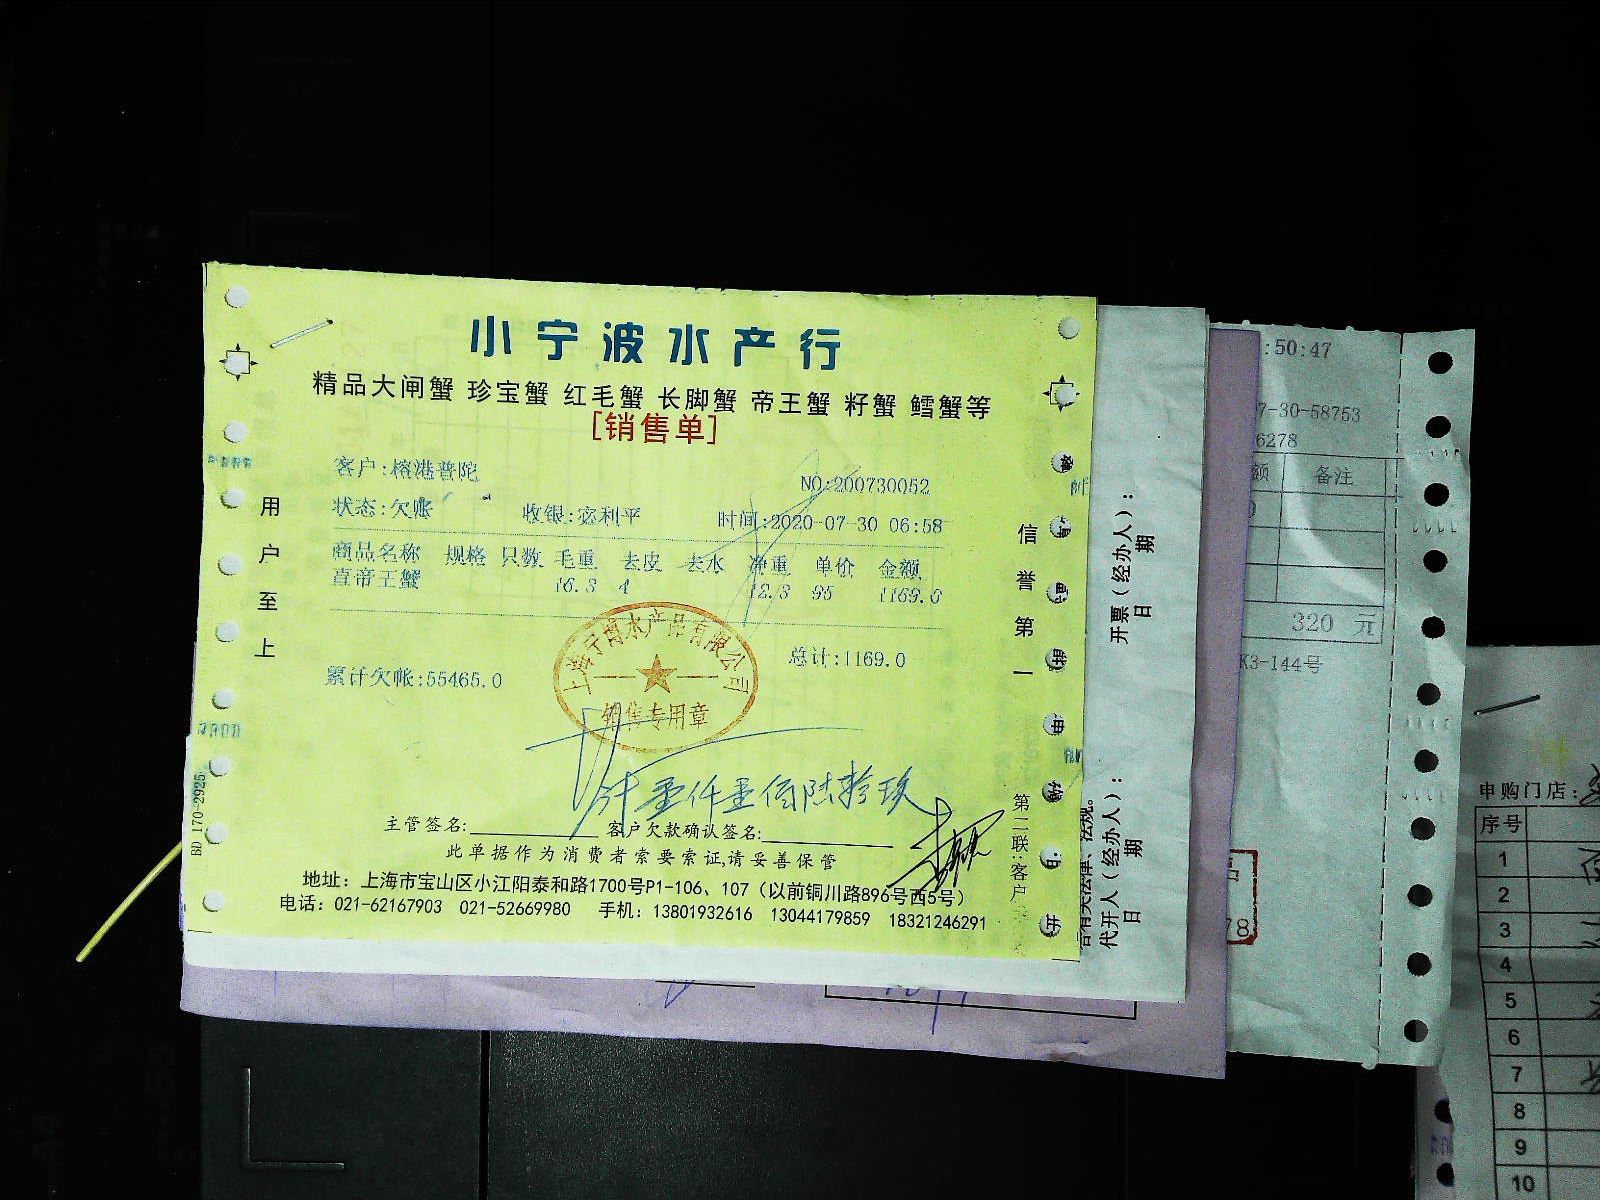 小宁波水产行
精品大闸蟹 珍宝蟹 红毛蟹 长脚蟹 帝王蟹 籽蟹 鳕蟹等
[销售单]
客户:榕港普陀
NO:200730052
状态:欠账 收银:宓利平 时间:2020-07-30 06:58
商品名称 规格 只数 毛重 去皮 去水 净重 单价 金额
直帝王蟹 16.3 4 12.3 95 1169.0
总计:1169.0
累计欠帐:55465.0
销售专用章
计壹仟壹佰陆拾玖
主管签名: 客户欠款确认签名:
此单据作为消费者索要索证,请妥善保管
地址：上海市宝山区小江阳泰和路1700号P1-106、107（以前铜川路896号西5号）
电话：021-62167903 021-52669980 手机：13801932616 13044179859 18321246291
用户至上
信誉第一
第二联:客户
BD 170-2925
开票（经办人）：
日期
代开人（经办人）：
日期
:50:47
7-30-58753
6278
额 备注
320 元
K3-144号
78
申购门店：
序号
1
2
3
4
5
6
7
8
9
10